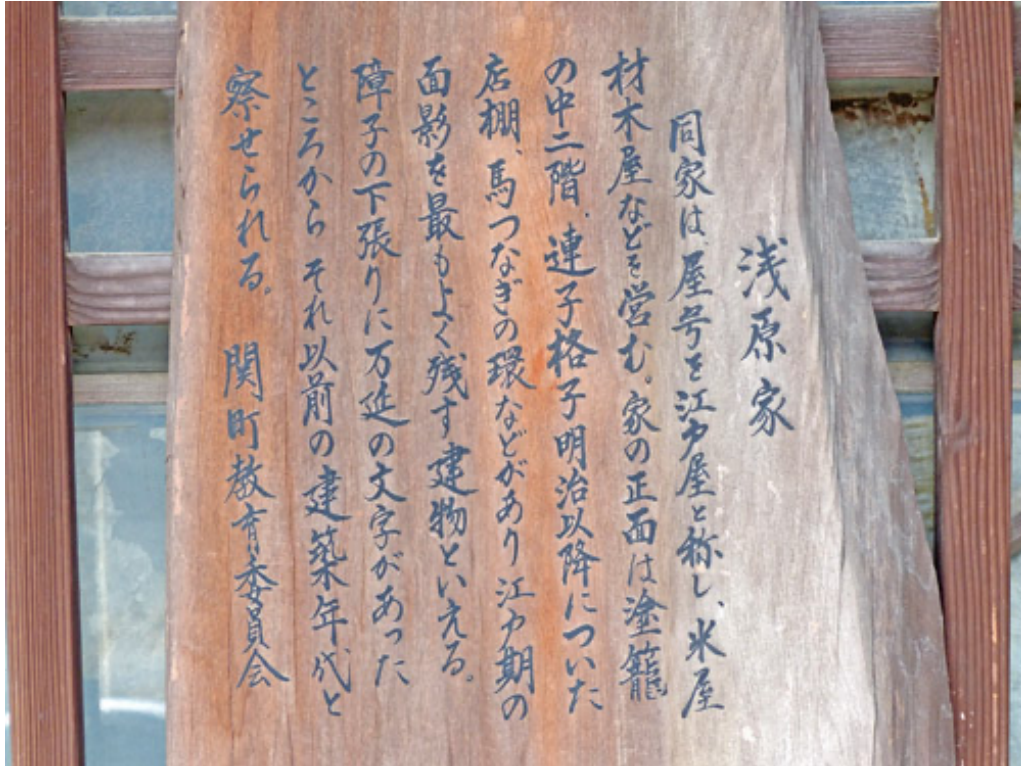 浅原家
同家は、屋号を江戸屋と称し、米屋
材木屋などを営む。家の正面は塗籠
の中二階、連子格子明治以降についた
店棚、馬つなぎの環などがあり江戸期の
面影を最もよく残す建物といえる。
障子の下張りに万延の文字があった
ところから それ以前の建築年代と
察せられる。 関町教育委員会